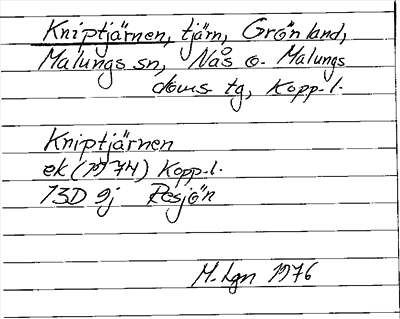 Kniptjärnen, tjärn, Grönland,
Malungs sn, Nås o. Malungs
doms tg, Kopp. l.
Kniptjärnen
ek (1974) Kopp. l.
13D 9j Resjön
M. Lgn 1976